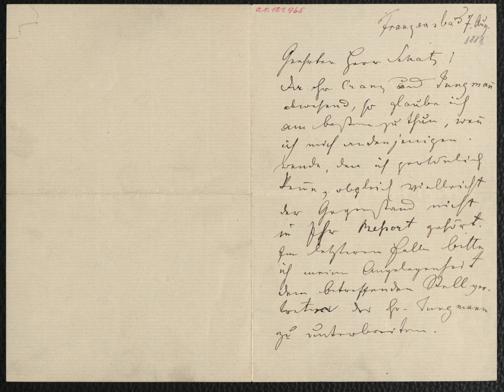 Franzensbad 7 Aug.
1888
Geehrter Herr Schatz!
Da Hr Cranz und Jungmann
abwesend, so glaube ich
am besten zu thun, wenn
ich mich an denjenigen
wende, den ich persönlich
kenne, obgleich vielleicht
der Gegenstand nicht
in Ihr Ressort gehört.
Im letzteren Falle bitte
ich meine Angelegenheit
dem betreffenden Stellver-
treter des Hr. Jungmann
zu unterbreiten.